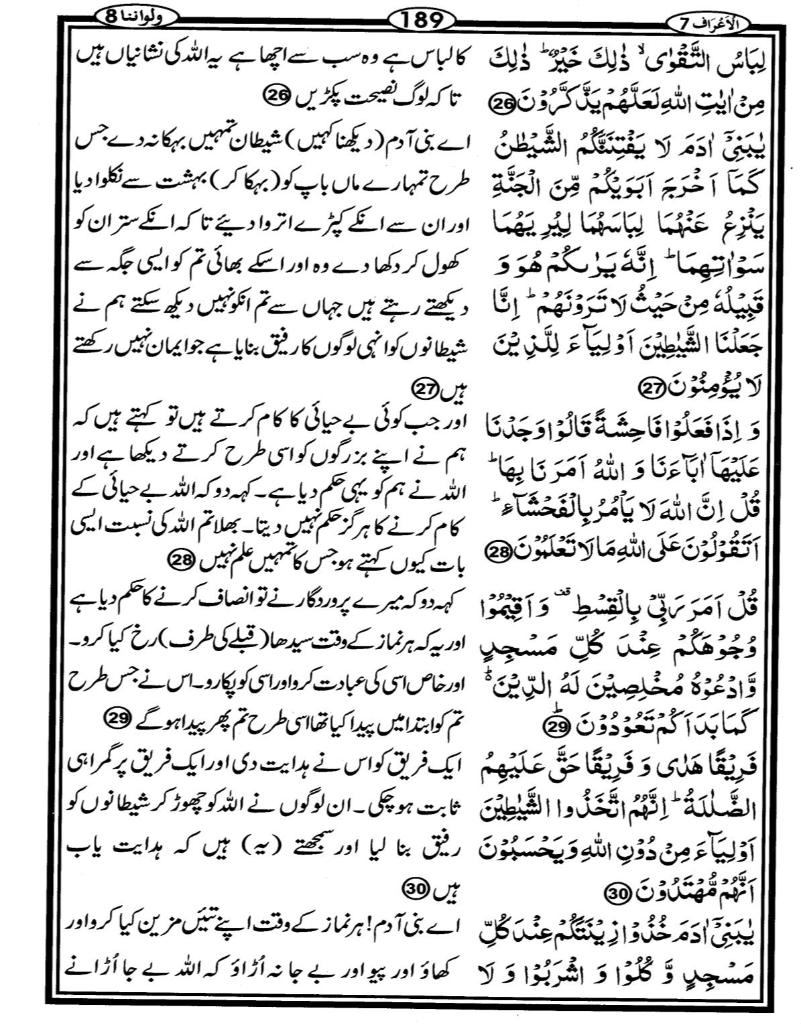 الاعراف 7
189
ولواننا 8
لِبَاسُ التَّقْوٰىۙ ذٰلِكَ خَيْرٌؕ ذٰلِكَ
مِنْ اٰيٰتِ اللّٰهِ لَعَلَّهُمْ يَذَّكَّرُوْنَ 26
يٰبَنِىْٓ اٰدَمَ لَا يَفْتِنَنَّكُمُ الشَّيْطٰنُ
كَمَاۤ اَخْرَجَ اَبَوَيْكُمْ مِّنَ الْجَنَّةِ
يَنْزِعُ عَنْهُمَا لِبَاسَهُمَا لِيُرِيَهُمَا
سَوْاٰتِهِمَاؕ اِنَّهٗ يَرٰىكُمْ هُوَ وَ
قَبِيْلُهٗ مِنْ حَيْثُ لَا تَرَوْنَهُمْؕ اِنَّا
جَعَلْنَا الشَّيٰطِيْنَ اَوْلِيَآءَ لِلَّذِيْنَ
لَا يُؤْمِنُوْنَ 27
وَ اِذَا فَعَلُوْا فَاحِشَةً قَالُوْا وَجَدْنَا
عَلَيْهَاۤ اٰبَآءَنَا وَ اللّٰهُ اَمَرَنَا بِهَاؕ
قُلْ اِنَّ اللّٰهَ لَا يَاْمُرُ بِالْفَحْشَآءِؕ
اَتَقُوْلُوْنَ عَلَى اللّٰهِ مَا لَا تَعْلَمُوْنَ 28
قُلْ اَمَرَ رَبِّىْ بِالْقِسْطِࣞ وَ اَقِيْمُوْا
وُجُوْهَكُمْ عِنْدَ كُلِّ مَسْجِدٍ
وَّادْعُوْهُ مُخْلِصِيْنَ لَهُ الدِّيْنَؕ
كَمَا بَدَاَكُمْ تَعُوْدُوْنَ 29
فَرِيْقًا هَدٰى وَ فَرِيْقًا حَقَّ عَلَيْهِمُ
الضَّلٰلَةُؕ اِنَّهُمُ اتَّخَذُوا الشَّيٰطِيْنَ
اَوْلِيَآءَ مِنْ دُوْنِ اللّٰهِ وَ يَحْسَبُوْنَ
اَنَّهُمْ مُّهْتَدُوْنَ 30
يٰبَنِىْٓ اٰدَمَ خُذُوْا زِيْنَتَكُمْ عِنْدَ كُلِّ
مَسْجِدٍ وَّ كُلُوْا وَ اشْرَبُوْا وَ لَا
کا لباس ہے وہ سب سے اچھا ہے یہ اللہ کی نشانیاں ہیں
تا کہ لوگ نصیحت پکڑیں 26
اے بنی آدم (دیکھنا کہیں) شیطان تمہیں بہکا نہ دے جس
طرح تمہارے ماں باپ کو (بہکا کر) بہشت سے نکلوا دیا
اور ان سے انکے کپڑے اتروا دیئے تا کہ انکے ستر ان کو
کھول کر دکھا دے وہ اور اسکے بھائی تم کو ایسی جگہ سے
دیکھتے رہتے ہیں جہاں سے تم انکو نہیں دیکھ سکتے ہم نے
شیطانوں کو انہی لوگوں کا رفیق بنایا ہے جو ایمان نہیں رکھتے
ہیں 27
اور جب کوئی بے حیائی کا کام کرتے ہیں تو کہتے ہیں کہ
ہم نے اپنے بزرگوں کو اسی طرح کرتے دیکھا ہے اور
اللہ نے ہم کو یہی حکم دیا ہے۔ کہہ دو کہ اللہ بے حیائی کے
کام کرنے کا ہرگز حکم نہیں دیتا۔ بھلا تم اللہ کی نسبت ایسی
بات کیوں کہتے ہو جس کا تمہیں علم نہیں 28
کہہ دو کہ میرے پروردگار نے تو انصاف کرنے کا حکم دیا ہے
اور یہ کہ ہر نماز کے وقت سیدھا (قبلے کی طرف) رخ کیا کرو۔
اور خاص اسی کی عبادت کرو اور اسی کو پکارو۔ اس نے جس طرح
تم کو ابتدا میں پیدا کیا تھا اسی طرح تم پھر پیدا ہو گے 29
ایک فریق کو اس نے ہدایت دی اور ایک فریق پر گمراہی
ثابت ہو چکی۔ ان لوگوں نے اللہ کو چھوڑ کر شیطانوں کو
رفیق بنا لیا اور سمجھتے (یہ) ہیں کہ ہدایت یاب
ہیں 30
اے بنی آدم! ہر نماز کے وقت اپنے تئیں مزین کیا کرو اور
کھاؤ اور پیو اور بے جا نہ اُڑاؤ کہ اللہ بے جا اُڑانے